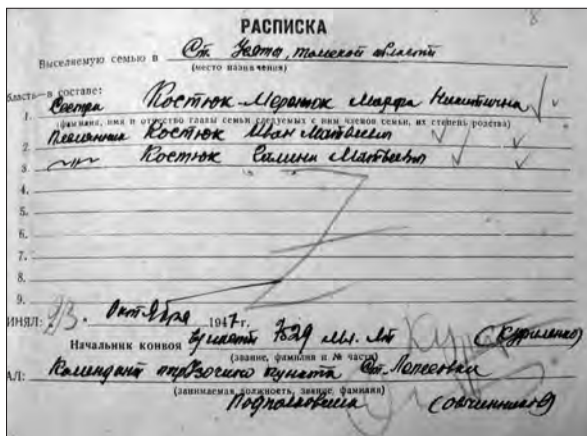 8
РАСПИСКА
Выселяемую семью в Ст. томской области
(место назначения)
бласть—в составе:
1. Сестра Костюк-Меронюк Марфа Никитична
(фамилия, имя и отчество главы семьи следуемых с ним членов семьи, их степень родства)
2. Племянник Костюк Иван Матвеевич
3. Костюк Матвеевы
4.
5.
6.
7.
8.
9.
ИНЯЛ: 23. Октября 1947 г.
Начальник конвоя 7529 мл. лт (Куриленко)
(звание, фамилия и № части)
АЛ: Комендант пункта Ст.
(занимаемая должность, звание, фамилия)
Подполковник (Овчинников)